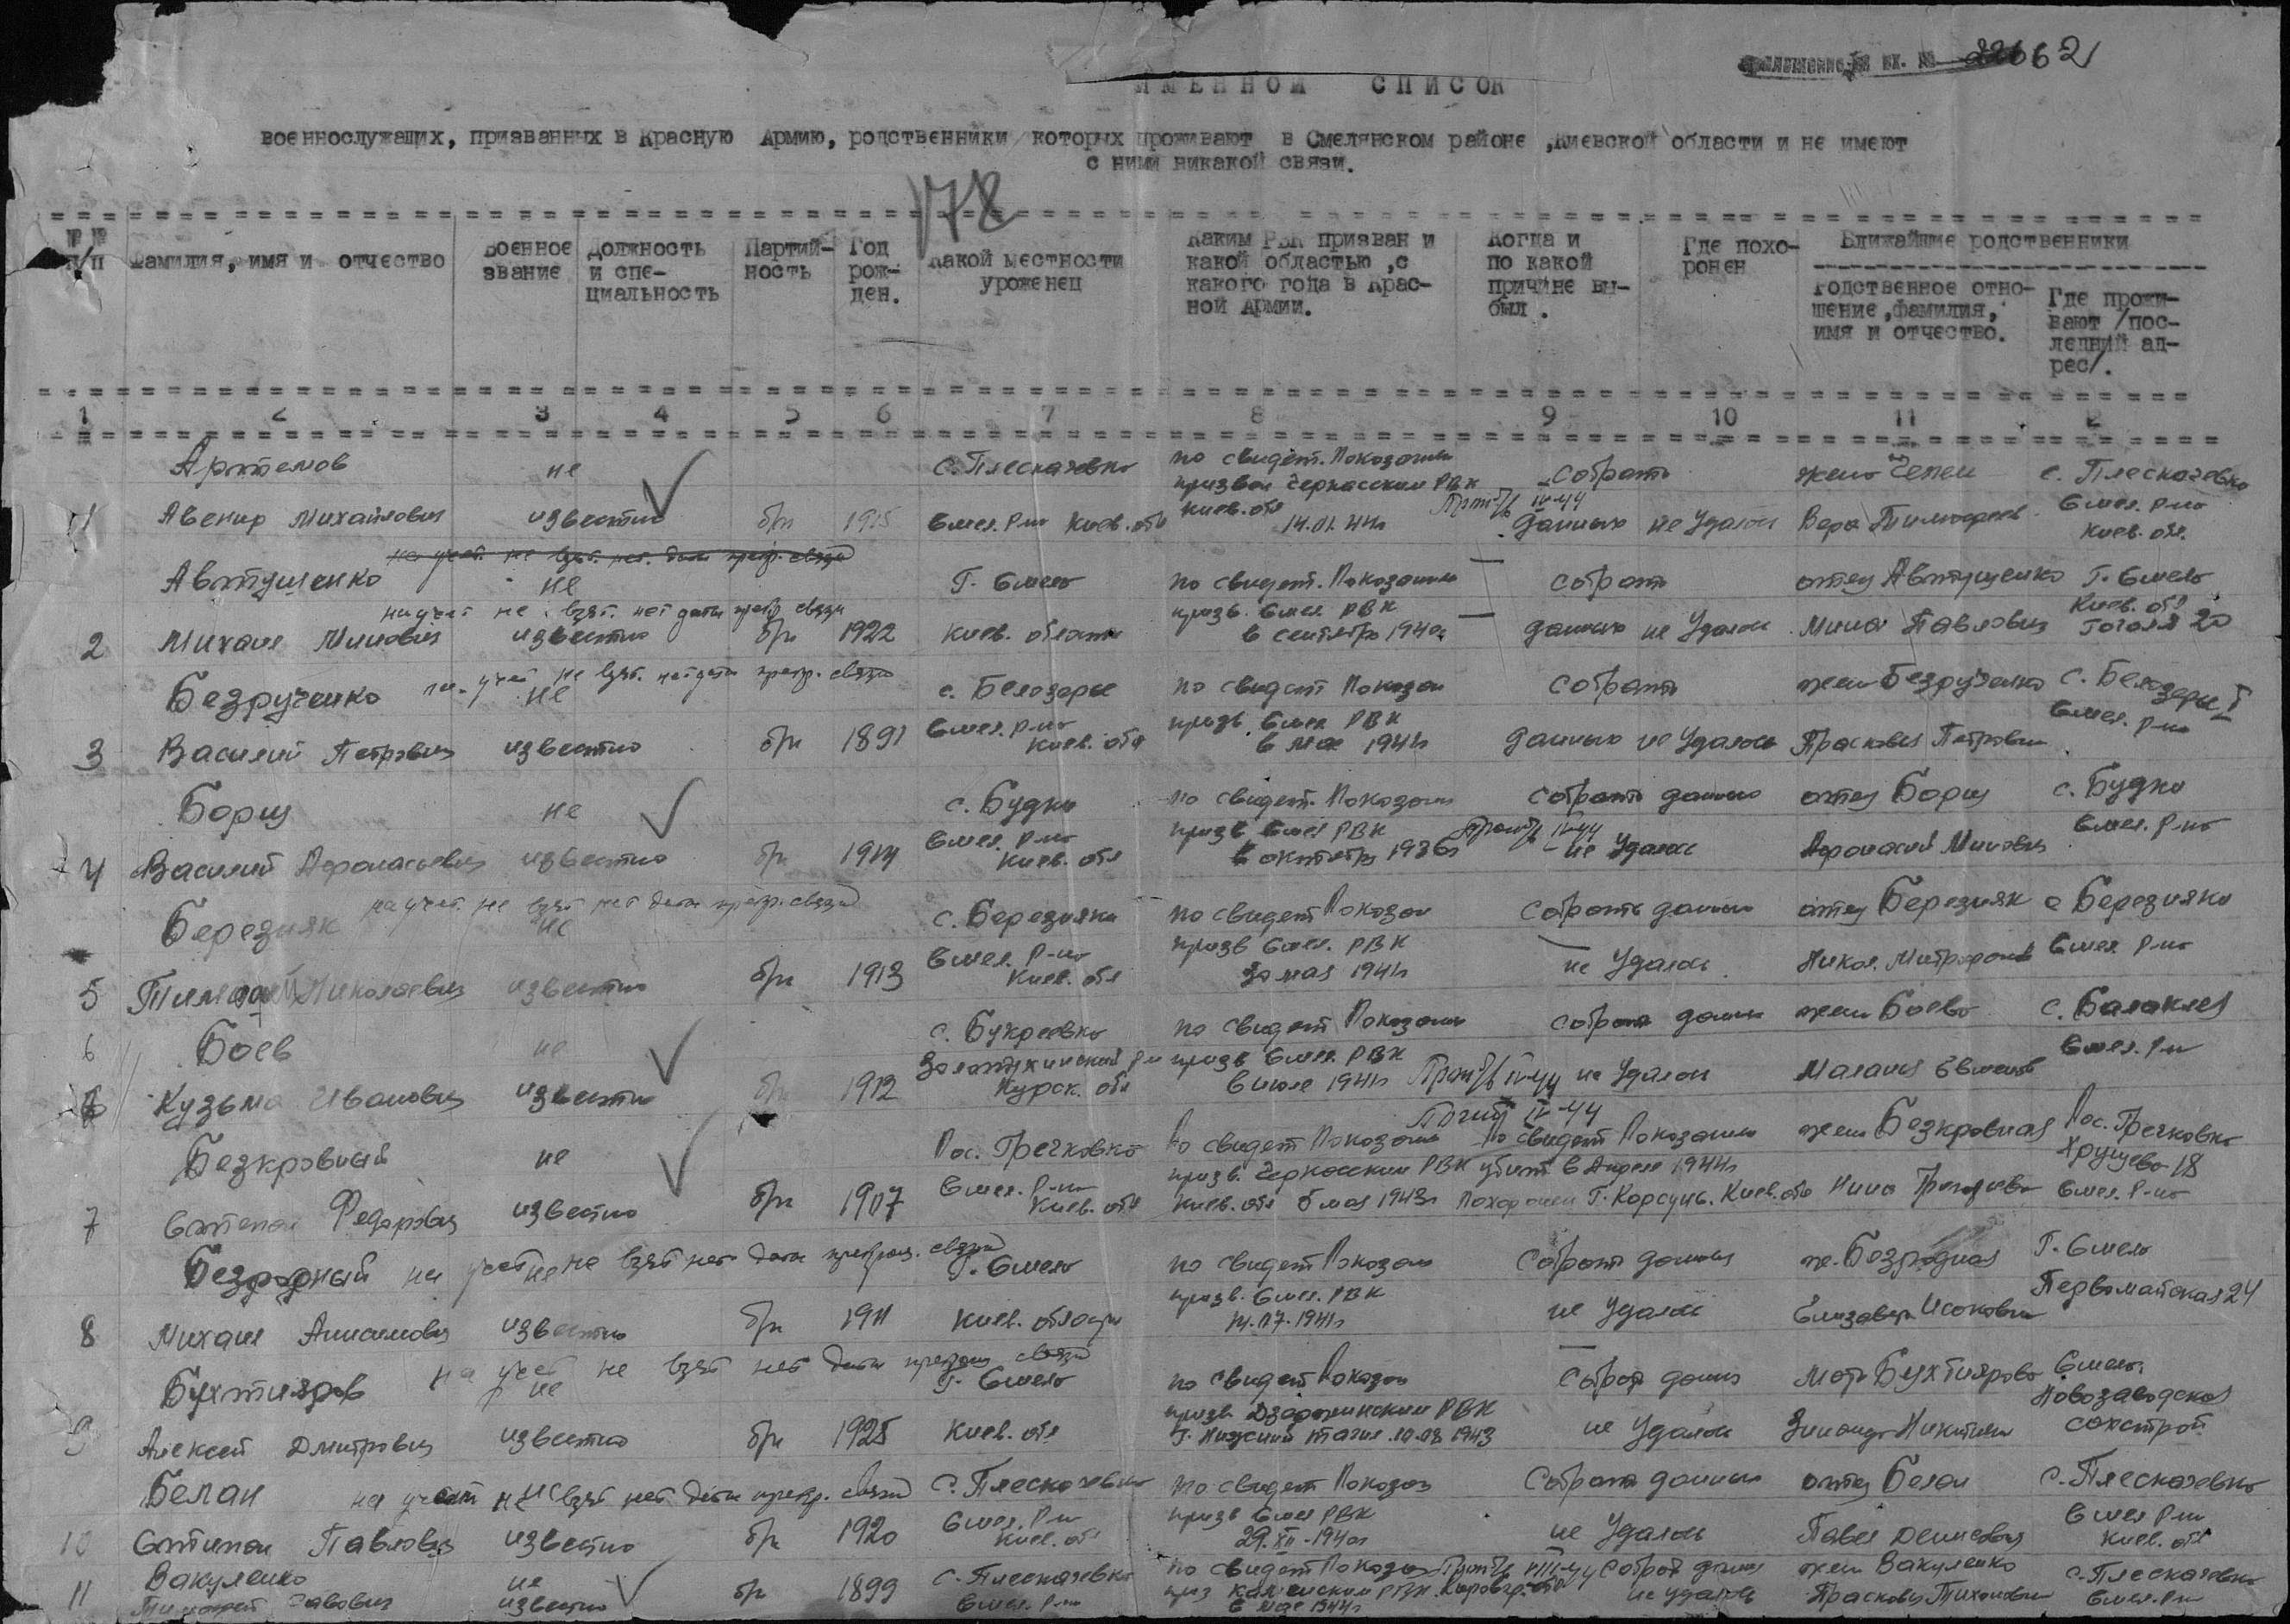 вх. № 22662
ИМЕННОЙ СПИСОК
военнослужащих, призванных в Красную Армию, родственники которых проживают в Смелянском районе ,Киевской области и не имеют
с ними никакой связи.
178
№№ п/п
Фамилия, имя и отчество
Военное звание
Должность и спе- циальность
Партий- ность
Год рож- ден.
Какой местности уроженец
Каким РВК призван и какой областью ,с какого года в Крас- ной Армии.
Когда и по какой причине вы- был .
Где похо- ронен
Ближайшие родственники
Родственное отно- шение ,фамилия, имя и отчество.
Где прожи- вают /пос- ледний ад- рес/.
1 2 3 4 5 6 7 8 9 10 11
Артемов не с. Плескачевка по свидет. Показаниям собрать жена с. Плескачевка
призван Черкасским РВК
1 Авенир Михайлович известно бп 1915 Смел. р-на Киев. обл Киев. обл 14.01.44г данных не удалось Вера Тимофеев. Смел. р-на
Киев. обл.
на учет не взят. нет. даты прекр. связи
Автушенко не г. Смела по свидет. Показаниям собрать отец Автушенко г. Смела
на учет не взят. нет даты прекр. связи призв. Смел РВК Киев. обл
2 Михаил Минович известно бп 1922 Киев. области в сентябре 1940г данных не удалось Мина Павлович Гоголя 20
на учет не взят. нет даты прекр. связи
Безрученко не с. Белозерье по свидет Показан собрать жена Безрученко с. Белозерье
призв. Смел РВК
3 Василий Петрович известно бп 1891 Смел. р-на Киев. обл в мае 1941г данных не удалось Прасковья Петровна Смел. р-на
Борщ не с. Будки по свидет. Показан собрать данных отец Борщ с. Будки
призв Смел РВК
4 Василий Афанасьевич известно бп 1914 Смел. р-на Киев. обл в октябре 1936г не удалось Афанасий Минович Смел. р-на
на учет. не взят нет даты прекр. связи
Березняк не с. Березняки по свидет Показан собрать данных отец Березняк с Березняки
призв Смел. РВК
5 Тимофей Николаевич известно бп 1913 Смел. р-на Киев. обл мая 1941г не удалось Никол. Митрофанов Смел р-на
6 Боев не с. Букреевка по свидет Показан собрать данных жена Боева с. Балаклея
Золотухинский р-н призв Смел. РВК
Кузьма Иванович известно бп 1912 Курск. обл в июле 1941г IV-44 не удалось Малания Смел. р-н
Погиб IV-44
Безкровный не Пос. Гречковка по свидет Показан по свидет Показанию жена Безкровная Пос. Гречковка
призв. Черкасским РВК убит в Апреле 1944г Хрущева 18
7 Степан Федорович известно бп 1907 Смел. р-на Киев. обл Киев. обл мая 1943г похоронен г. Корсунь. Киев. обл Нина Смел. р-на
Безродный на учет не взят нет даты прекращ. связи г. Смела по свидет Показан собрать данных ж. Безродная г. Смела
призв. Смел. РВК
8 Михаил Анисимович известно бп 1911 Киев. области 07.1941г не удалось Елизавета Исаковна Первомайская 24
на учет не взят нет даты прекращ связи
Бухтияров не г. Смела по свидет Показан собрат данных мать Бухтиярова Смела
призв. Дзержинским РВК Новозаводская
9 Алексей Дмитриевич известно бп 1925 Киев. обл г. Нижний Тагил. 10.02 1943 не удалось Никитична сахстрой
Белан на учет не взят нет. даты прекр. связи с. Плескачевка по свидет Показан собрать данных отец Белан с. Плескачевка
призв Смел РВК
10 Степан Павлович известно бп 1920 Смел. р-н Киев. об 29.XII-1940г не удалось Павел Денисович Смел р-н Киев. обл
Вакуленко не с. Плескачевка по свидет Показан собрат данных жена Вакуленко с. Плескачевка
11 Савович известно бп 1899 Смел. р-на в мае 1944г не удалось Прасковья Тихоновна Смел. р-н